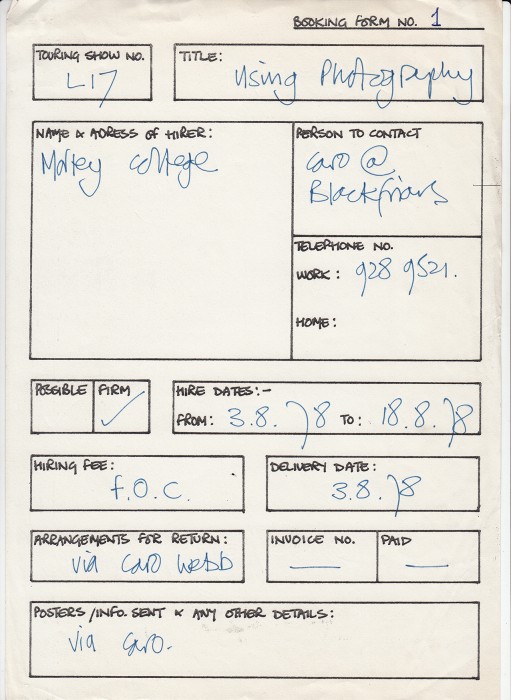 BOOKING FORM NO. 1
TOURING SHOW NO.
L17
TITLE:
Using Photography
NAME & ADRESS OF HIRER:
Morley College
PERSON TO CONTACT
Caro @
Blackfriars
TELEPHONE NO.
WORK: 928 9521.
HOME:
POSSIBLE
FIRM ✓
HIRE DATES:-
FROM: 3.8.78 TO: 18.8.78
HIRING FEE:
F.O.C.
DELIVERY DATE:
3.8.78
ARRANGEMENTS FOR RETURN:
via Caro Webb
INVOICE NO.
—
PAID
—
POSTERS/INFO. SENT & ANY OTHER DETAILS:
via Caro.